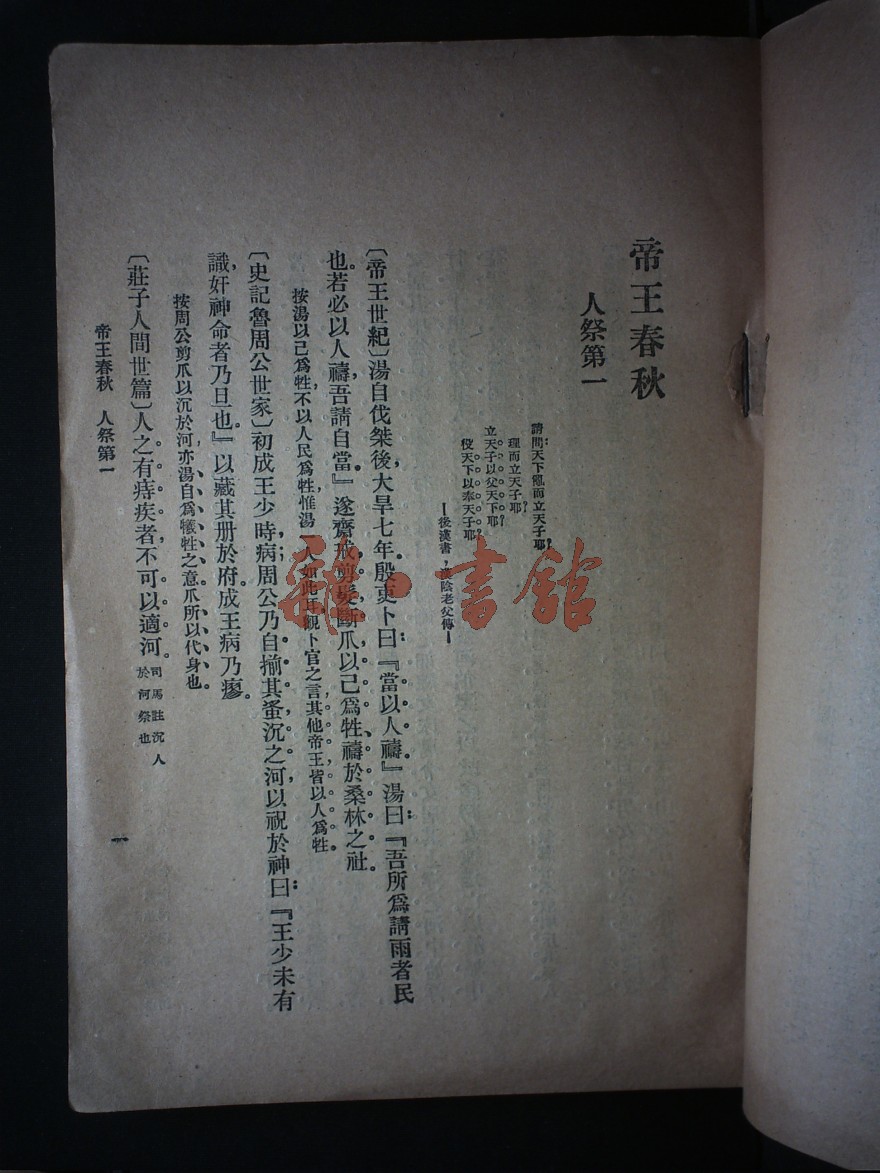 帝王春秋
人祭第一
請問天下亂而立天子耶？
理而立天子耶？
立天子以父天下耶？
役天下以奉天子耶？
—後漢書，漢陰老父傳—
〔帝王世紀〕湯自伐桀後，大旱七年。殷吏卜曰：『當以人禱』湯曰：『吾所爲請雨者民
也。若必以人禱，吾請自當。』遂齋戒剪髮斷爪以己爲牲，禱於桑林之社。
按湯以己爲牲，不以人民爲牲，惟湯一人如此耳。觀卜官之言，其他帝王皆以人爲牲。
〔史記魯周公世家〕初成王少時病；周公乃自揃其蚤，沉之河，以祝於神曰：『王少未有
識，奸神命者乃旦也』以藏其册於府。成王病乃瘳。
按周公剪爪以沉於河，亦湯自爲犧牲之意，爪所以代身也。
〔莊子人間世篇〕人之有痔疾者，不可以適河。司馬註沉人於河祭也
帝王春秋　人祭第一
一
雅·書館